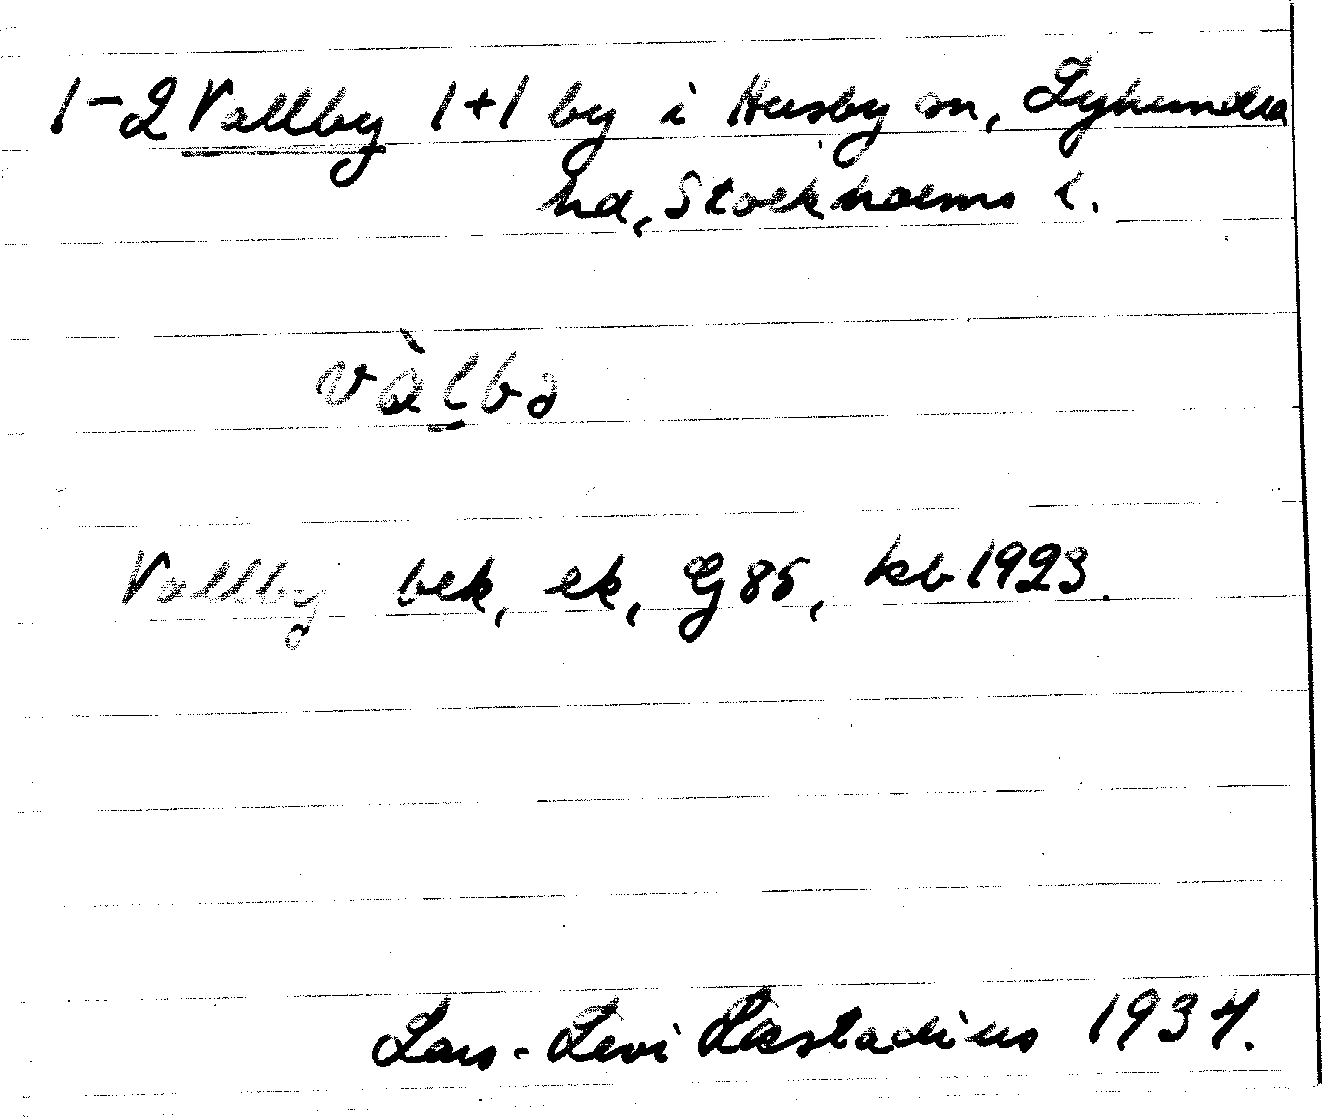 1-2 Vallby 1+1 by i Husby sn, Lyhundra
hd, Stockholms l.
vàl̠bə
Vallby bek, ek, G 85, kb 1923.
Lars-Levi Læstadius 1934.